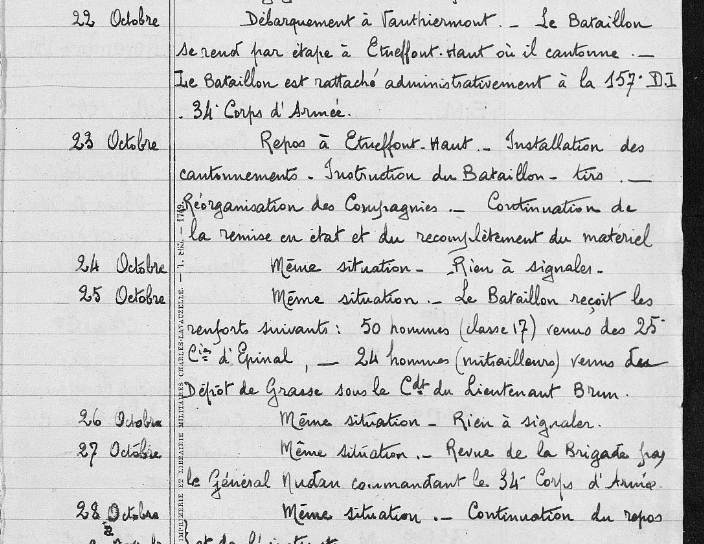 22 Octobre Débarquement à Vauthiermont. _ Le Bataillon
se rend par étape à Etueffont-Haut où il cantonne. _
Le Bataillon est rattaché administrativement à la 157e D.I
. 34e Corps d'Armée.
23 Octobre Repos à Etueffont-Haut. _ Installation des
cantonnements - Instruction du Bataillon - tirs. _
Réorganisation des Compagnies. _ Continuation de
la remise en état et du recomplètement du matériel
24 Octobre Même situation - Rien à signaler -
25 Octobre Même situation. _ Le Bataillon reçoit les
renforts suivants : 50 hommes (classe 17) venus des 25e
Cies d'Epinal, _ 24 hommes (mitrailleurs) venus du
Dépôt de Grasse sous le Cdt du Lieutenant Brun.
26 Octobre Même situation - Rien à signaler.
27 Octobre Même situation. _ Revue de la Brigade par
le Général Nudan commandant le 34e Corps d'Armée.
28 Octobre Même situation. _ Continuation du repos
et de
IMPRIMERIE ET LIBRAIRIE MILITAIRES CHARLES-LAVAUZELLE. —